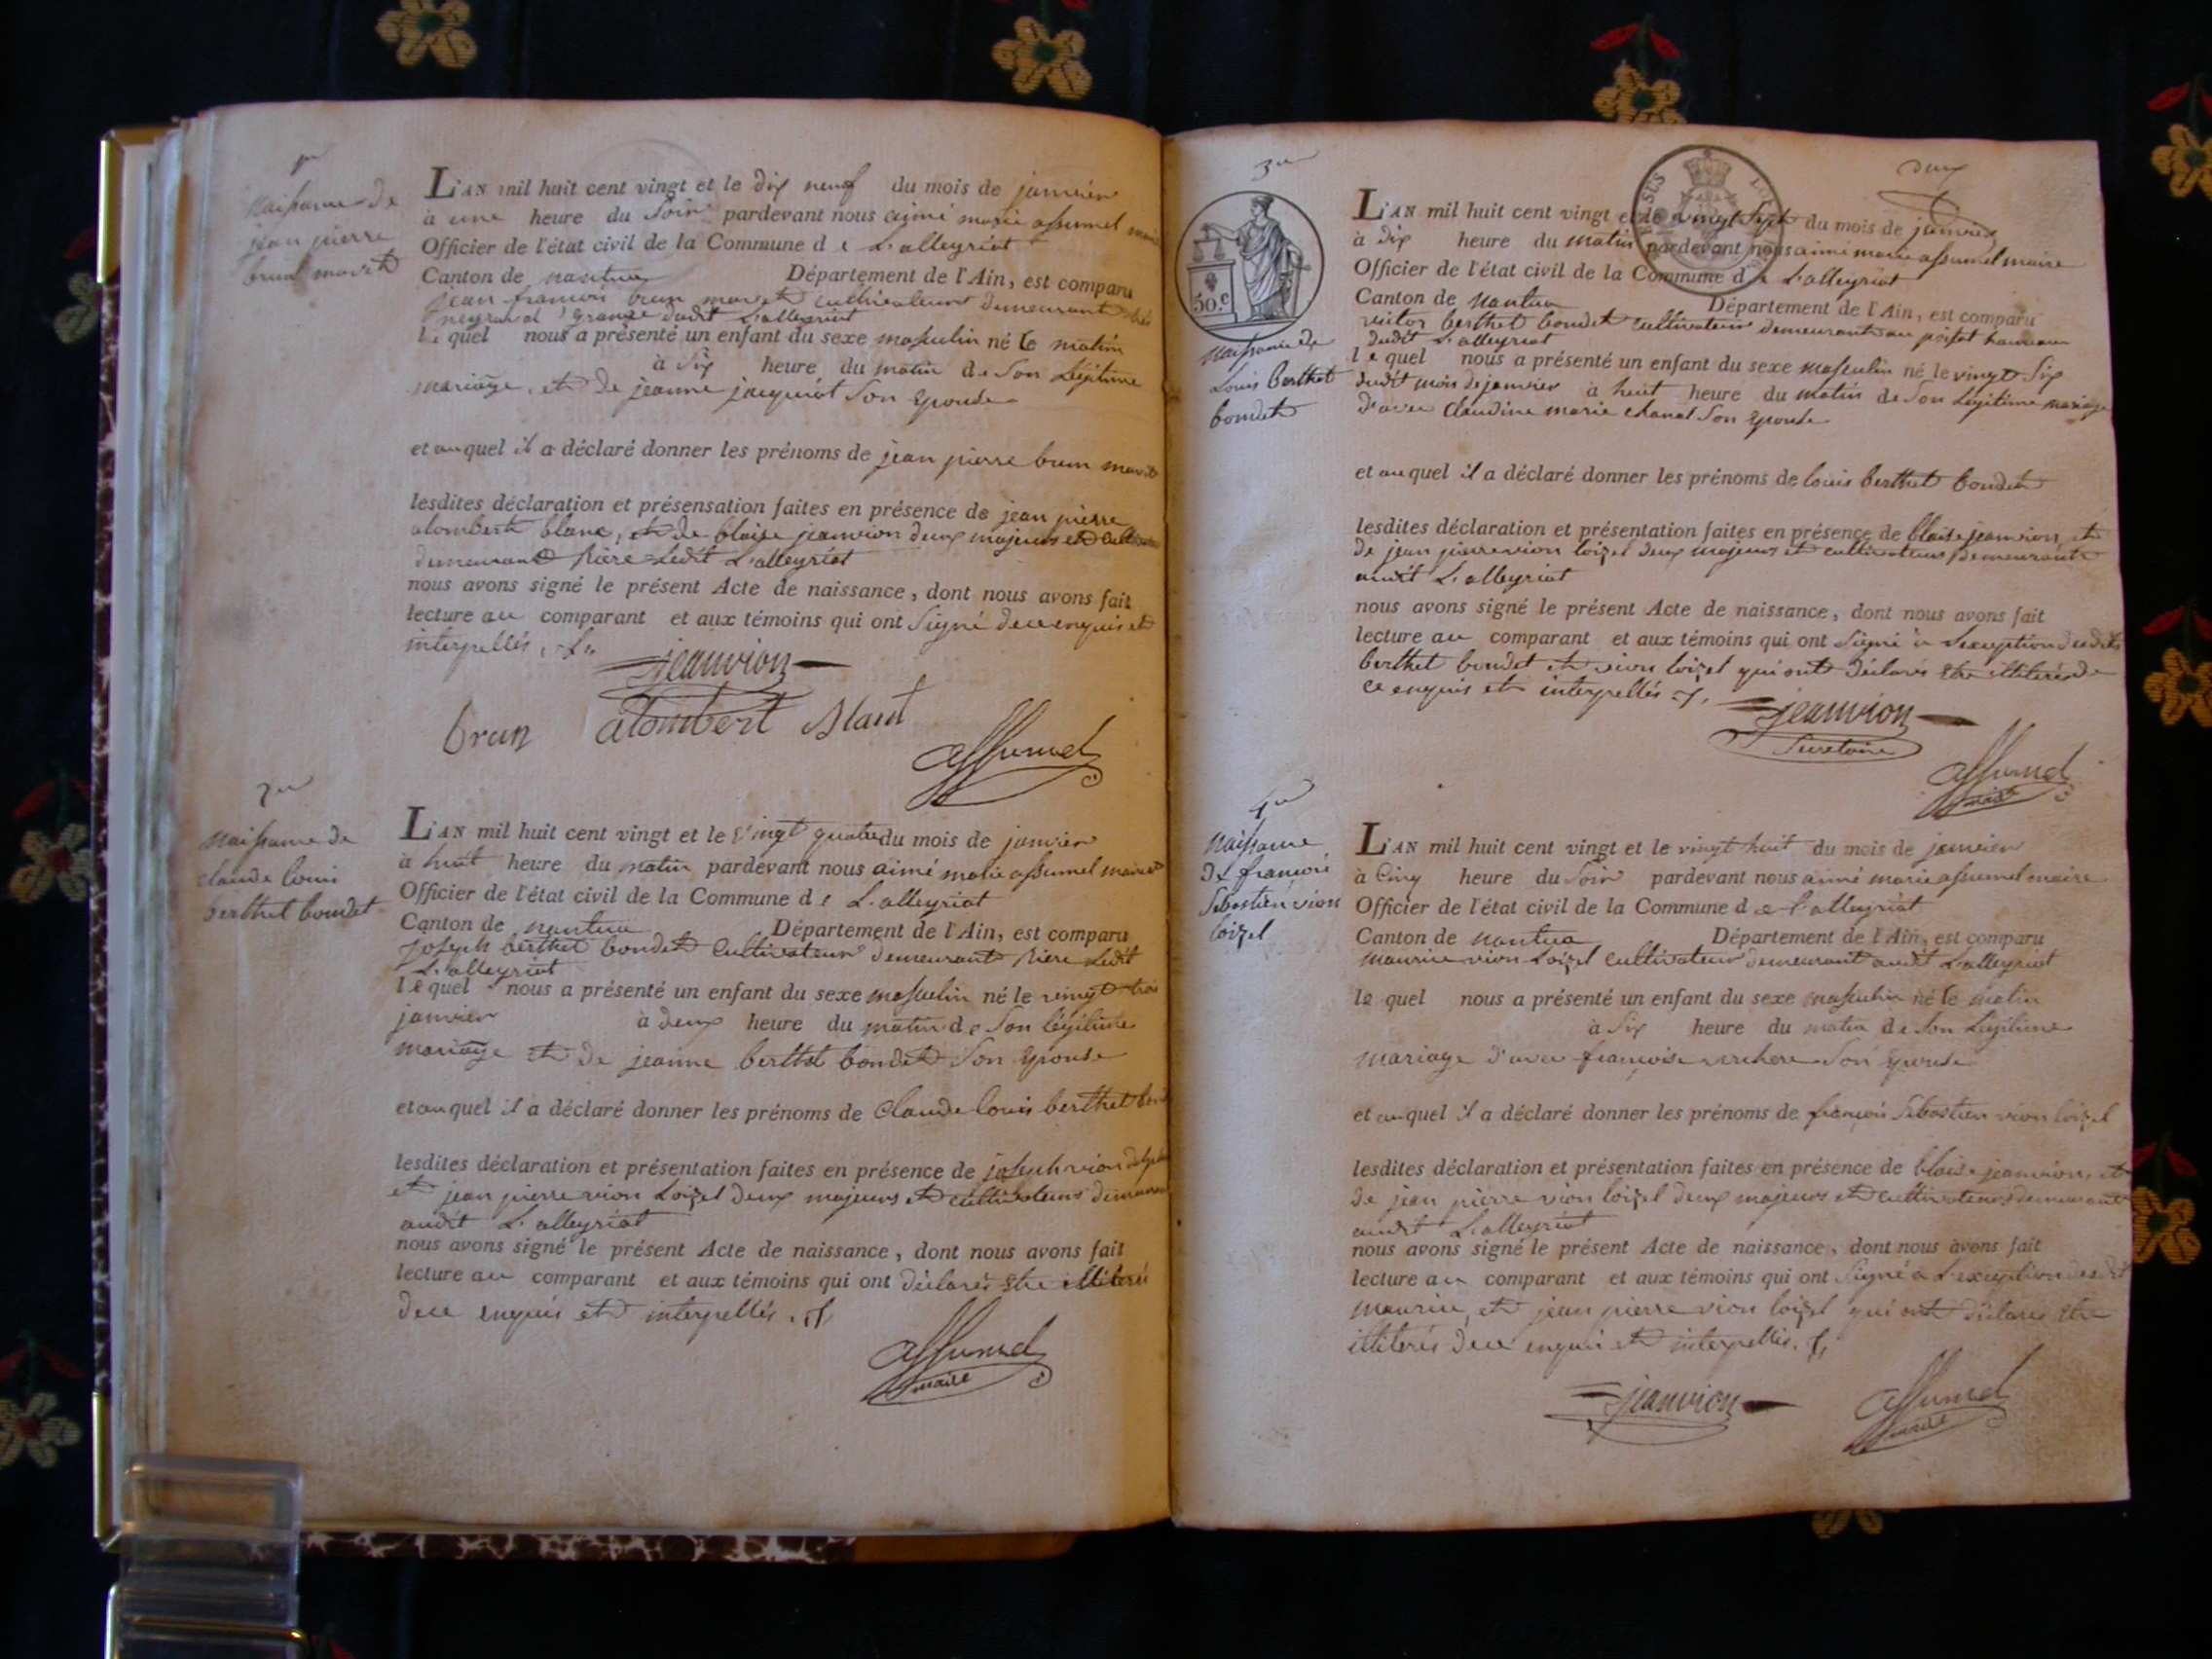 1er
Naissance de
jean pierre
brun mavet
L'AN mil huit cent vingt et le dix neuf du mois de janvier
à une heure du Soir pardevant nous aimé marie assumel maire
Officier de l'état civil de la Commune de L'alleyriat
Canton de nantua Département de l'Ain, est comparu
jean francois brun mavet cultivateur demeurant
grange dudit L'alleyriat
lequel nous a présenté un enfant du sexe masculin né le matin
à Six heure du matin de Son Légitime
mariage, et de jeanne jacquiot Son Epouse
et auquel il a déclaré donner les prénoms de jean pierre brun mavet
lesdites déclaration et présensation faites en présence de jean pierre
alombert blanc, et de blaise jeanvion deux majeurs et
demeurant Rière Ledit L'alleyriat
nous avons signé le présent Acte de naissance, dont nous avons fait
lecture au comparant et aux témoins qui ont Signé dece enquis et
interpellés,
jeanvion
brun alombert blanc
assumel
2me
Naissance de
claude louis
berthet bondet
L'AN mil huit cent vingt et le vingt quatre du mois de janvier
à huit heure du matin pardevant nous aimé marie assumel maire
Officier de l'état civil de la Commune de L'alleyriat
Canton de nantua Département de l'Ain, est comparu
joseph berthet bondet Cultivateur demeurant Rière Ledit
L'alleyriat
lequel nous a présenté un enfant du sexe masculin né le vingt trois
janvier à deux heure du matin de Son légitime
mariage et de jeanne berthet bondet Son Epouse
et auquel il a déclaré donner les prénoms de Claude louis berthet
lesdites déclaration et présentation faites en présence de joseph vion
et jean pierre vion Loizel deux majeurs et cultivateurs
audit L'alleyriat
nous avons signé le présent Acte de naissance, dont nous avons fait
lecture au comparant et aux témoins qui ont déclarés Etre illiterés
dece enquis et interpellés.
assumel
maire
3me
deux
50.c
Naissance de
Louis berthet
bondet
L'AN mil huit cent vingt et le vingt Sept du mois de janvier
à dix heure du matin pardevant nous aimé marie assumel maire
Officier de l'état civil de la Commune de L'alleyriat
Canton de Nantua Département de l'Ain, est comparu
victor berthet bondet cultivateur demeurant au poisat hameau
dudit L'alleyriat
lequel nous a présenté un enfant du sexe masculin né le vingt Six
dudit mois de janvier à huit heure du matin de Son Légitime mariage
d'avec claudine marie chanal Son Epouse
et auquel il a déclaré donner les prénoms de louis berthet bondet
lesdites déclaration et présentation faites en présence de blaise jeanvion, et
de jean pierre vion loizel deux majeurs et cultivateurs demeurants
audit L'alleyriat
nous avons signé le présent Acte de naissance, dont nous avons fait
lecture au comparant et aux témoins qui ont Signé à L'exception desdits
berthet bondet et vion loizel qui ont déclarés Etre illiterés de
ce enquis et interpellés
jeanvion
Secretaire
assumel
maire
4me
Naissance
de francois
Sébastien vion
loizel
L'AN mil huit cent vingt et le vingt huit du mois de janvier
à Cinq heure du Soir pardevant nous aimé marie assumel maire
Officier de l'état civil de la Commune de l'alleyriat
Canton de Nantua Département de l'Ain, est comparu
maurice vion Loizel Cultivateur demeurant audit L'alleyriat
lequel nous a présenté un enfant du sexe masculin né le matin
à Six heure du matin de Son Légitime
mariage d'avec françoise verchere Son Epouse
et auquel il a déclaré donner les prénoms de françois Sébastien vion loizel
lesdites déclaration et présentation faites en présence de blaise jeanvion, et
de jean pierre vion loizel deux majeurs et cultivateurs demeurant
audit L'alleyriat
nous avons signé le présent Acte de naissance, dont nous avons fait
lecture au comparant et aux témoins qui ont Signé à L'exception desdit
maurice, et jean pierre vion loizel qui ont déclarés Etre
illiterés dece enquis et interpellés.
jeanvion
assumel
maire